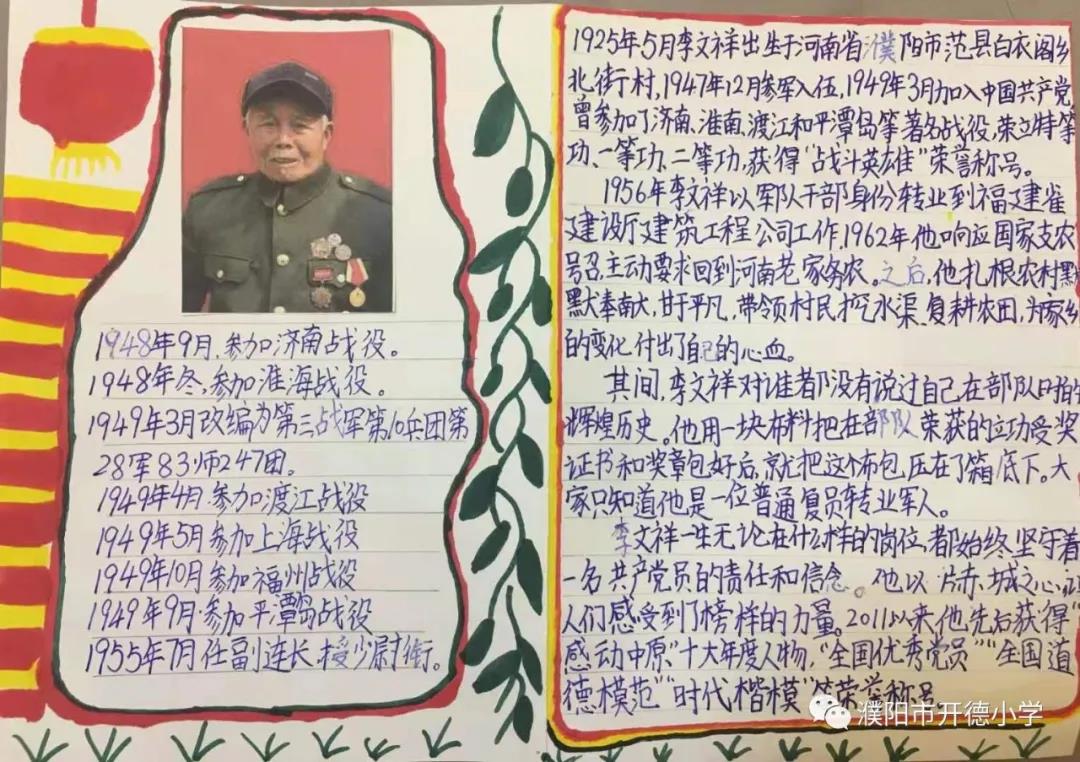 1948年9月,参加济南战役。
1948年冬,参加淮海战役。
1949年3月改编为第三战军第10兵团第
28军83师247团。
1949年4月参加渡江战役
1949年5月参加上海战役
1949年10月参加福州战役
1949年9月参加平潭岛战役
1955年7月任副连长 授少尉衔。
1925年5月李文祥出生于河南省濮阳市范县白衣阁乡
北街村,1947年12月参军入伍,1949年3月加入中国共产党
曾参加了济南、淮南、渡江和平潭岛等著名战役,荣立特等
功、一等功、二等功,获得"战斗英雄"荣誉称号。
1956年李文祥以军队干部身份转业到福建省
建设厅建筑工程公司工作,1962年他响应国家支农
号召主动要求回到河南老家务农。之后,他扎根农村默
默奉南大,甘于平凡,带领村民挖水渠、复耕农田,为家乡
的变化付出了自己的心血。
其间,李文祥对谁都没有说过自己在部队
辉煌历史。他用一块布料把在部队荣获的立功受奖
证书和奖章包好后,就把这个布包压在了箱底下。大
家只知道他是一位普通复员转业军人。
李文祥一生无论在什么样的岗位,都始终坚守着
一名共产党员的责任和信念。他以片赤城之心,
人们感受到了榜样的力量。2011以来,他先后获得"
感动中原"十大年度人物,"全国优秀党员""全国道
德模范""时代楷模"等荣誉称号
濮阳市开德小学